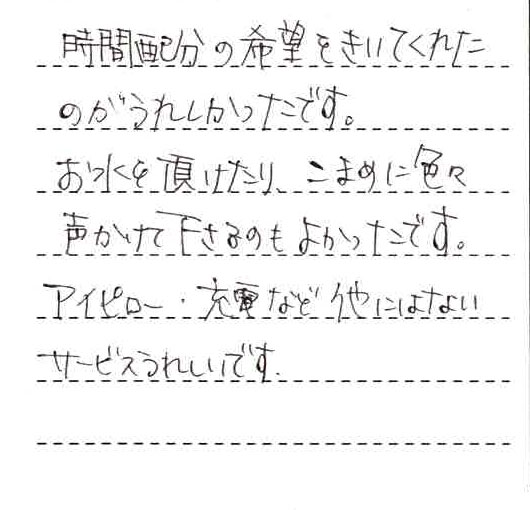 時間配分の希望をきいてくれた
のがうれしかったです。
お水を頂けたり、こまめに色々
声かけて下さるのもよかったです。
アイピロー・充電など他にはない
サービスうれしいです.